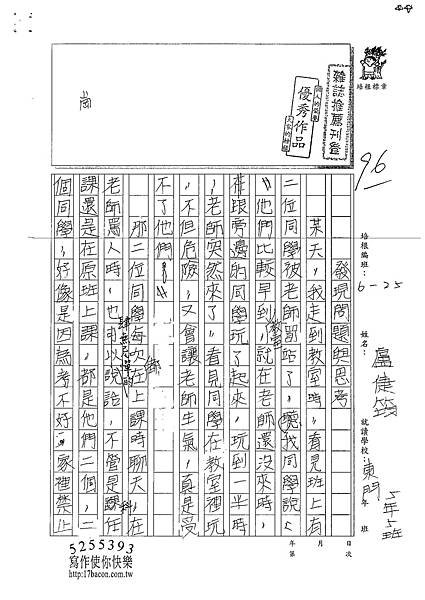 培根標章
雜誌推薦刊登
個人的榮譽
優秀作品
大家的榜樣
尚
96
培根編班：6-25
姓名：盧倢筠
就讀學校：東門
5年5班
年 班
發現問題與思考
某天，我走到教室時，看見班上有
二位同學被老師罰站了，聽我同學說
，他們比較早到教室，就在老師還沒來時，
就跟旁邊的同學玩了起來，玩到一半時
，老師突然來了，看見同學在教室裡玩
，不但危險，又會讓老師生氣，真是受
不了他們！
那二位同學每次在上課時聊天，在
老師罵人時，也可以說話，不管是科任
課還是在原班上課，都是他們二個，二
個同學，好像是因為考不好，家裡禁止
年 月 日
第 次
5255393
寫作使你快樂
http://17bacon.com.tw